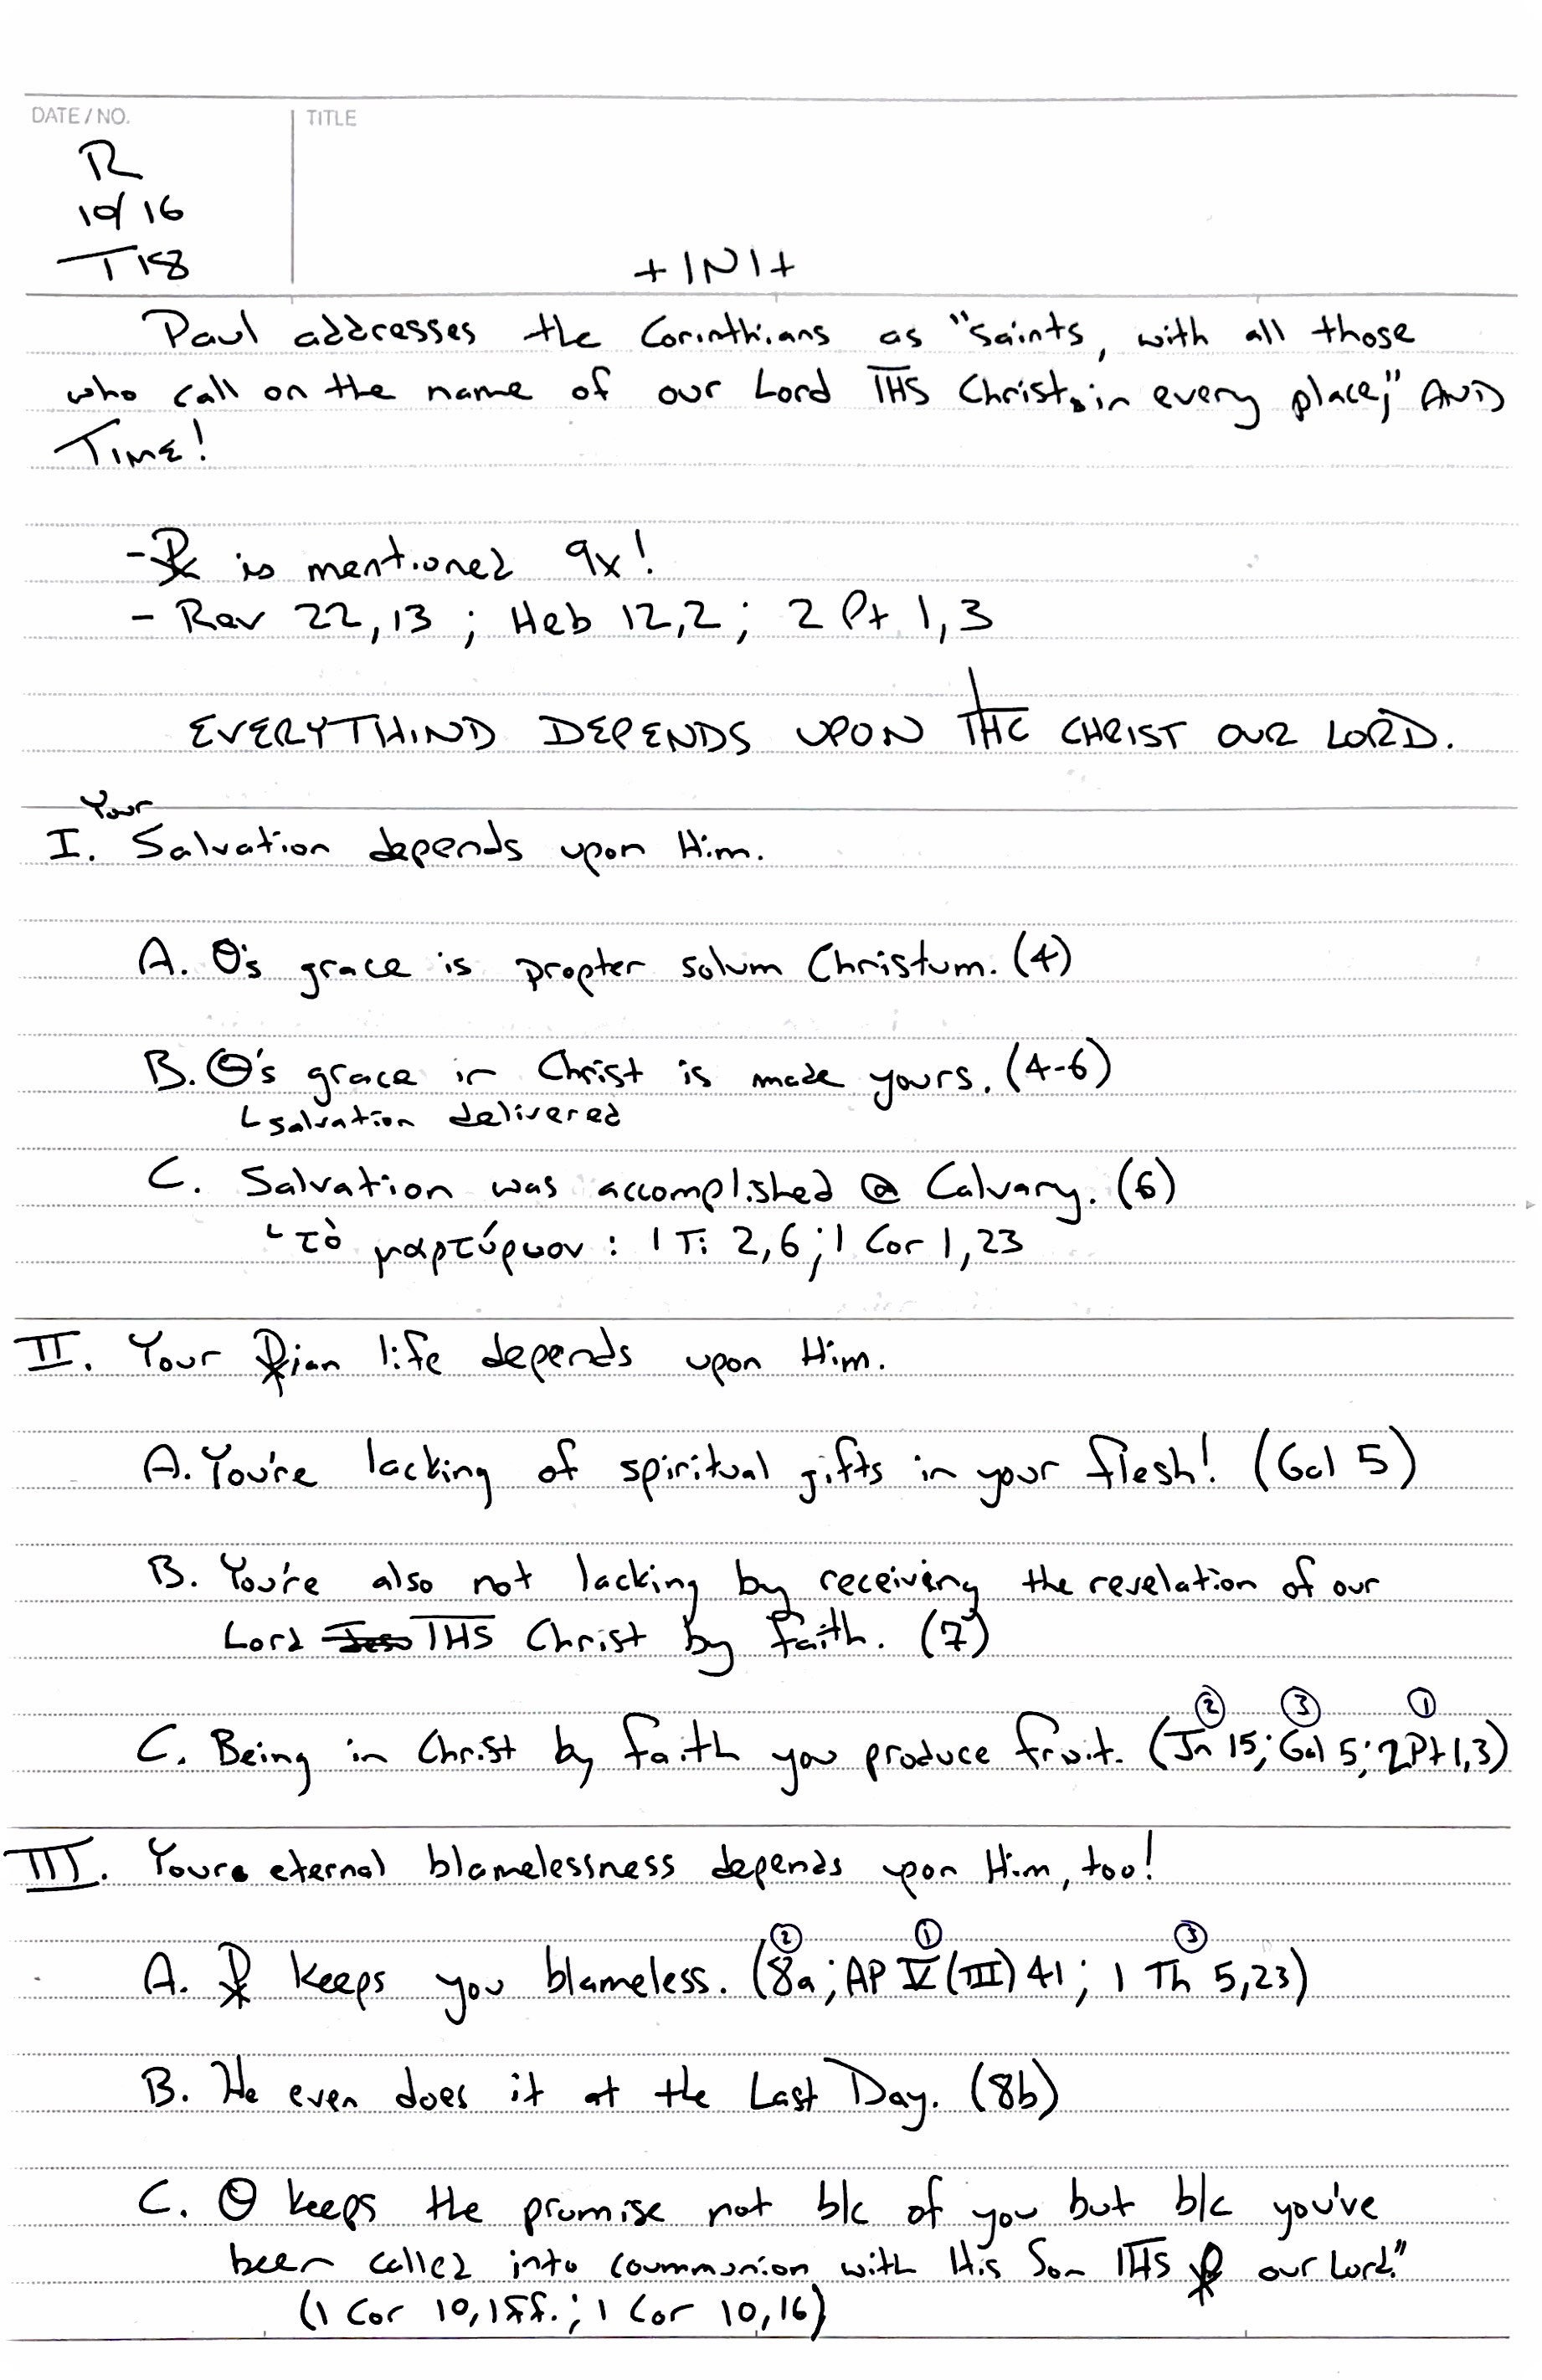 DATE/NO. TITLE
R
10/16
T18
+INI+
Paul addresses the Corinthians as "saints, with all those
who call on the name of our Lord IHS Christ in every place," AND
TIME!
- ☧ is mentioned 9x!
- Rev 22,13 ; Heb 12,2 ; 2 Pt 1,3
EVERYTHIND DEPENDS UPON IHC CHRIST OUR LORD.
Your
I. Salvation depends upon Him.
A. Θ's grace is propter solum Christum. (4)
B. Θ's grace in Christ is made yours. (4-6)
└ salvation delivered
C. Salvation was accomplished @ Calvary. (6)
└ τὸ μαρτύριον : 1 Ti 2,6 ; 1 Cor 1,23
II. Your ☧ian life depends upon Him.
A. You're lacking of spiritual gifts in your flesh! (Gal 5)
B. You're also not lacking by receiving the revelation of our
Lord IHS Christ by faith. (7)
② ③ ①
C. Being in Christ by faith you produce fruit. (Jn 15; Gal 5; 2Pt 1,3)
III. Your eternal blamelessness depends upon Him, too!
② ① ③
A. ☧ keeps you blameless. (8a; AP V (III) 41; 1 Th 5,23)
B. He even does it at the Last Day. (8b)
C. Θ keeps the promise not b/c of you but b/c you've
been called into coummunion with His Son IHS ☧ our Lord."
(1 Cor 10,1ff. ; 1 Cor 10,16)